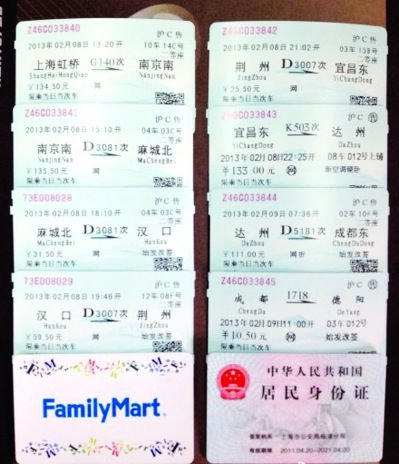 Z46C033840 沪C售
2013年02月08日 13:20开 10车 14C号
二等座
上海虹桥 G140次 南京南
ShangHaiHongQiao NanJingNan
¥134.50元 网
限乘当日当次车
沪C售
2013年02月08日 15:10开 04车 03C号
南京南 D3081次 麻城北
NanJingNan MaChengBei
¥135.50元 网
限乘当日当次车
73E008028 沪C售
2013年02月08日 18:10开 04车 03C号
麻城北 D3081次 汉口
MaChengBei HanKou
¥31.50元 网 始发改签
限乘当日当次车
73E008029 沪C售
2013年02月08日 19:46开 12车 08F号
汉口 D3007次 荆州
HanKou JingZhou
¥59.50元 网 始发改签
限乘当日当次车
FamilyMart
Z46C033842 沪C售
2013年02月08日 21:02开 03车 15B号
二等座
荆州 D3007次 宜昌东
JingZhou YiChangDong
¥25.50元 网
限乘当日当次车
Z46C033843 沪C售
宜昌东 K503次 达州
YiChangDong DaZhou
2013年02月08日22:25开 08车 012号上铺
¥133.00元 网 新空调硬卧
限乘当日当次车
Z46C033844 沪C售
2013年02月09日 07:36开 02车 10F号
达州 D5181次 成都东
DaZhou ChengDuDong
¥111.00元 网折 始发改签
限乘当日当次车
Z46C033845 沪C售
成都 1718 德阳
ChengDu DeYang
2013年02月09日11:00开 03车 012号
¥10.50元 网 始发改签
限乘当日当次车
中华人民共和国
居民身份证
签发机关 上海市公安局杨浦分局
有效期限 2011.04.20-2021.04.20